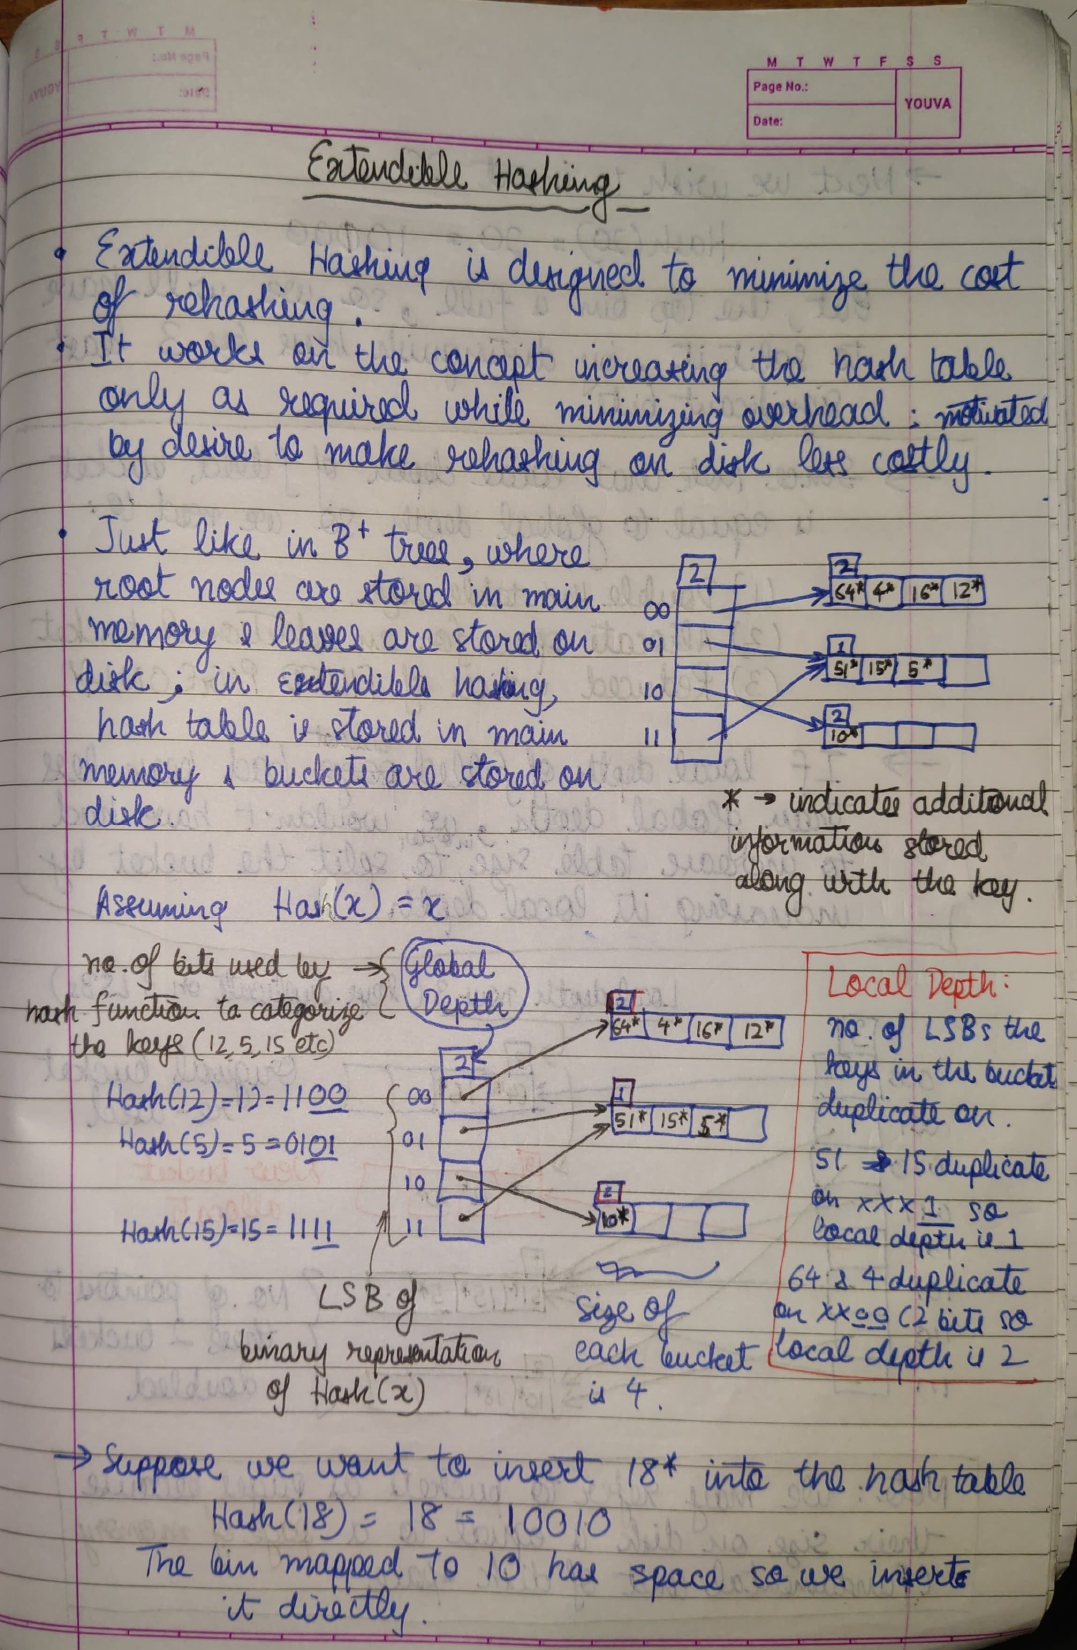 M T W T F S S
Page No.:
Date:
YOUVA
Extendible Hashing
• Extendible Hashing is designed to minimize the cost
of rehashing.
• It works on the concept increasing the hash table
only as required while minimizing overhead : motivated
by desire to make rehashing on disk less costly.
• Just like in B+ trees, where
root nodes are stored in main
memory & leaves are stored on
disk; in extendible hashing,
hash table is stored in main
memory & buckets are stored on
disk.
2
00
01
10
11
2
64* 4* 16* 12*
1
51* 15* 5*
2
10*
* → indicates additional
information stored
along with the key.
Assuming Hash(x) = x
no. of bits used by →
hash function to categorize
the keys (12, 5, 15 etc)
Global
Depth
Hash(12)=12=1100
Hash(5)=5=0101
Hash(15)=15=1111
2
00
01
10
11
2
64* 4* 16* 12*
1
51* 15* 5*
2
10*
LSB of
binary representation
of Hash(x)
size of
each bucket
is 4.
Local Depth:
no. of LSBs the
keys in the bucket
duplicate on.
51 & 15 duplicate
on xxx1 so
local depth is 1
64 & 4 duplicate
on xx00 (2 bits so
local depth is 2
→ Suppose we want to insert 18* into the hash table
Hash(18) = 18 = 10010
The bin mapped to 10 has space so we insert
it directly.